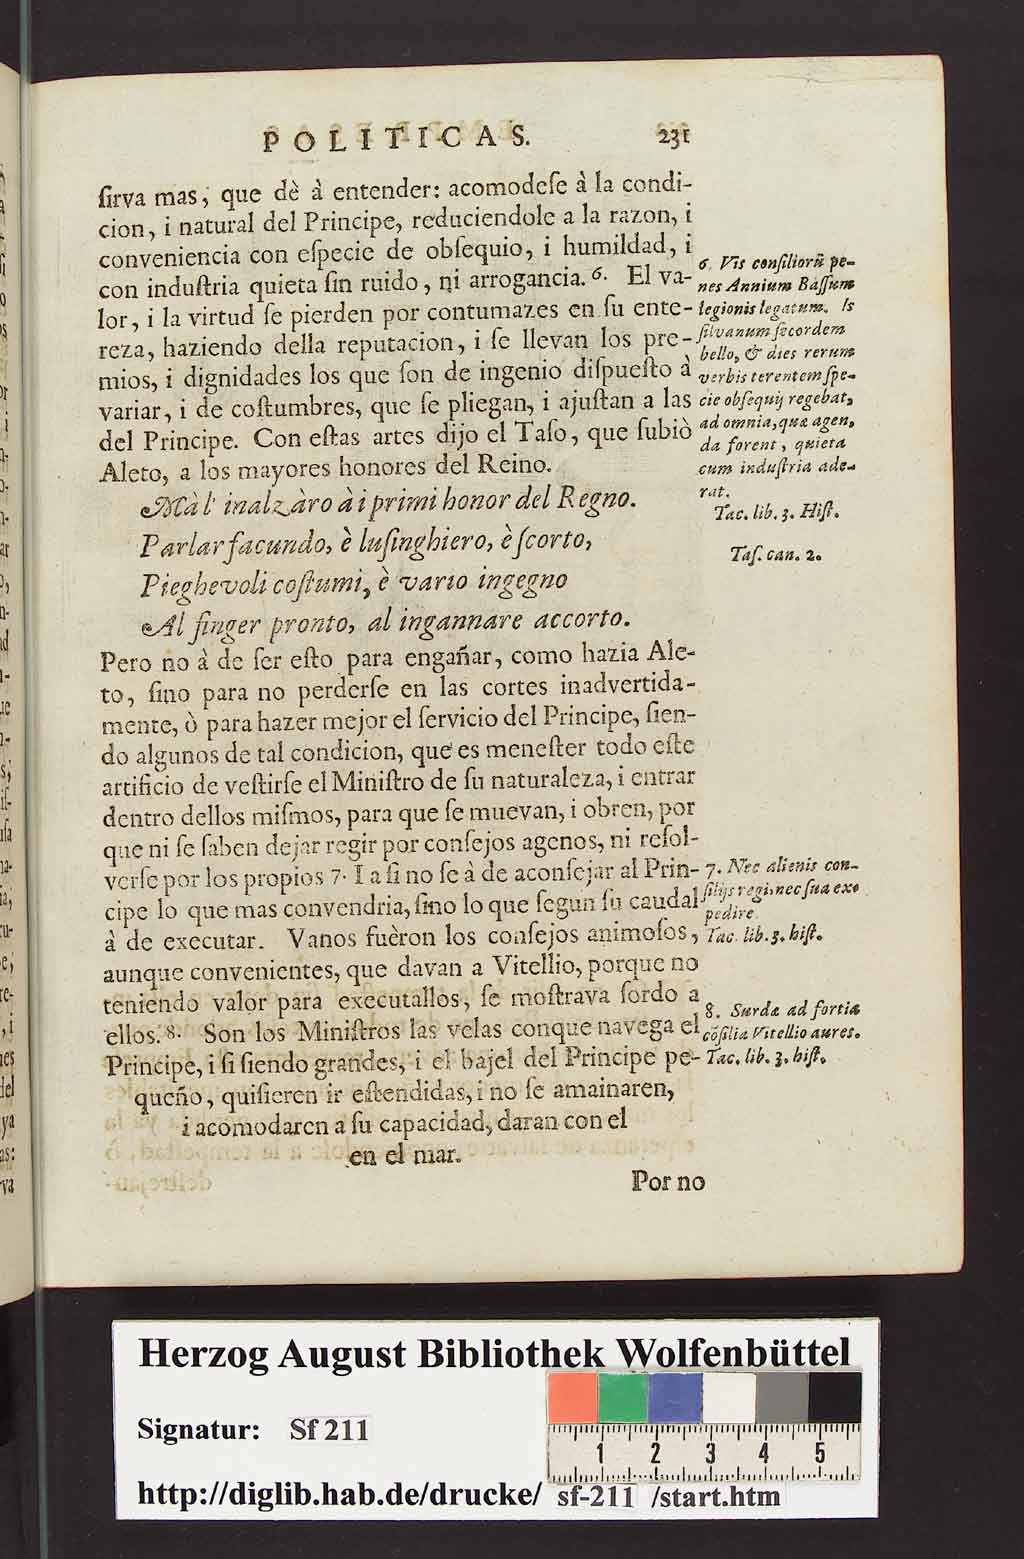 POLITICAS. 231
ſirva mas, que dè à entender: acomodeſe à la condi-
cion, i natural del Principe, reduciendole a la razon, i
conveniencia con eſpecie de obſequio, i humildad, i
con induſtria quieta ſin ruido, ni arrogancia. 6. El va-
lor, i la virtud ſe pierden por contumazes en ſu ente-
reza, haziendo della reputacion, i ſe llevan los pre-
mios, i dignidades los que ſon de ingenio diſpueſto à
variar, i de coſtumbres, que ſe pliegan, i ajuſtan a las
del Principe. Con eſtas artes dijo el Taſo, que ſubiò
Aleto, a los mayores honores del Reino.
Mà l' inalzàro à i primi honor del Regno.
Parlar facundo, è luſinghiero, è ſcorto,
Pieghevoli coſtumi, è vario ingegno
Al finger pronto, al ingannare accorto.
Pero no à de ſer eſto para engañar, como hazia Ale-
to, ſino para no perderſe en las cortes inadvertida-
mente, ò para hazer mejor el ſervicio del Principe, ſien-
do algunos de tal condicion, que es meneſter todo eſte
artificio de veſtirſe el Miniſtro de ſu naturaleza, i entrar
dentro dellos miſmos, para que ſe muevan, i obren, por
que ni ſe ſaben dejar regir por conſejos agenos, ni reſol-
verſe por los propios 7. I aſi no ſe à de aconſejar al Prin-
cipe lo que mas convendria, ſino lo que ſegun ſu caudal
à de executar. Vanos fuèron los conſejos animoſos,
aunque convenientes, que davan a Vitellio, porque no
teniendo valor para executallos, ſe moſtrava ſordo a
ellos. 8. Son los Miniſtros las velas conque navega el
Principe, i ſi ſiendo grandes, i el bajel del Principe pe-
queño, quiſieren ir eſtendidas, i no ſe amainaren,
i acomodaren a ſu capacidad, daran con el
en el mar.
Por no
6. Vis conſiliorũ pe-
nes Annium Baſſum
legionis legatum. Is
ſilvanum ſecordem
bello, & dies rerum
verbis terentem ſpe-
cie obſequij regebat,
ad omnia, quæ agen,
da forent, quieta
cum induſtria ade-
rat.
Tac. lib. 3. Hiſt.
Taſ. can. 2.
7. Nec alienis con-
ſilijs regi, nec ſua ex-
pedire.
Tac. lib. 3. hiſt.
8. Surdæ ad fortia
cõſilia Vitellio aures.
Tac. lib. 3. hiſt.
Herzog August Bibliothek Wolfenbüttel
Signatur: Sf 211
1 2 3 4 5
http://diglib.hab.de/drucke/ sf-211 /start.htm